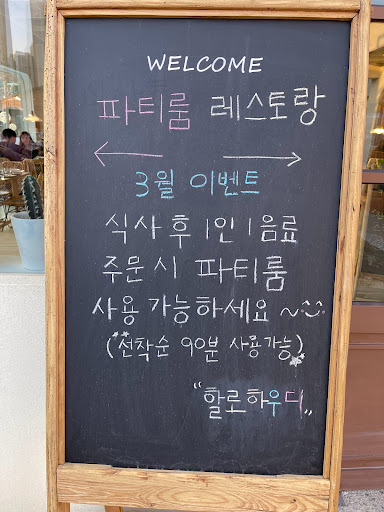 WELCOME
파티룸 레스토랑
← →
3월 이벤트
식사 후 1인 1음료
주문 시 파티룸
사용 가능하세요 ~
(선착순 90분 사용가능)
"할로하우디"